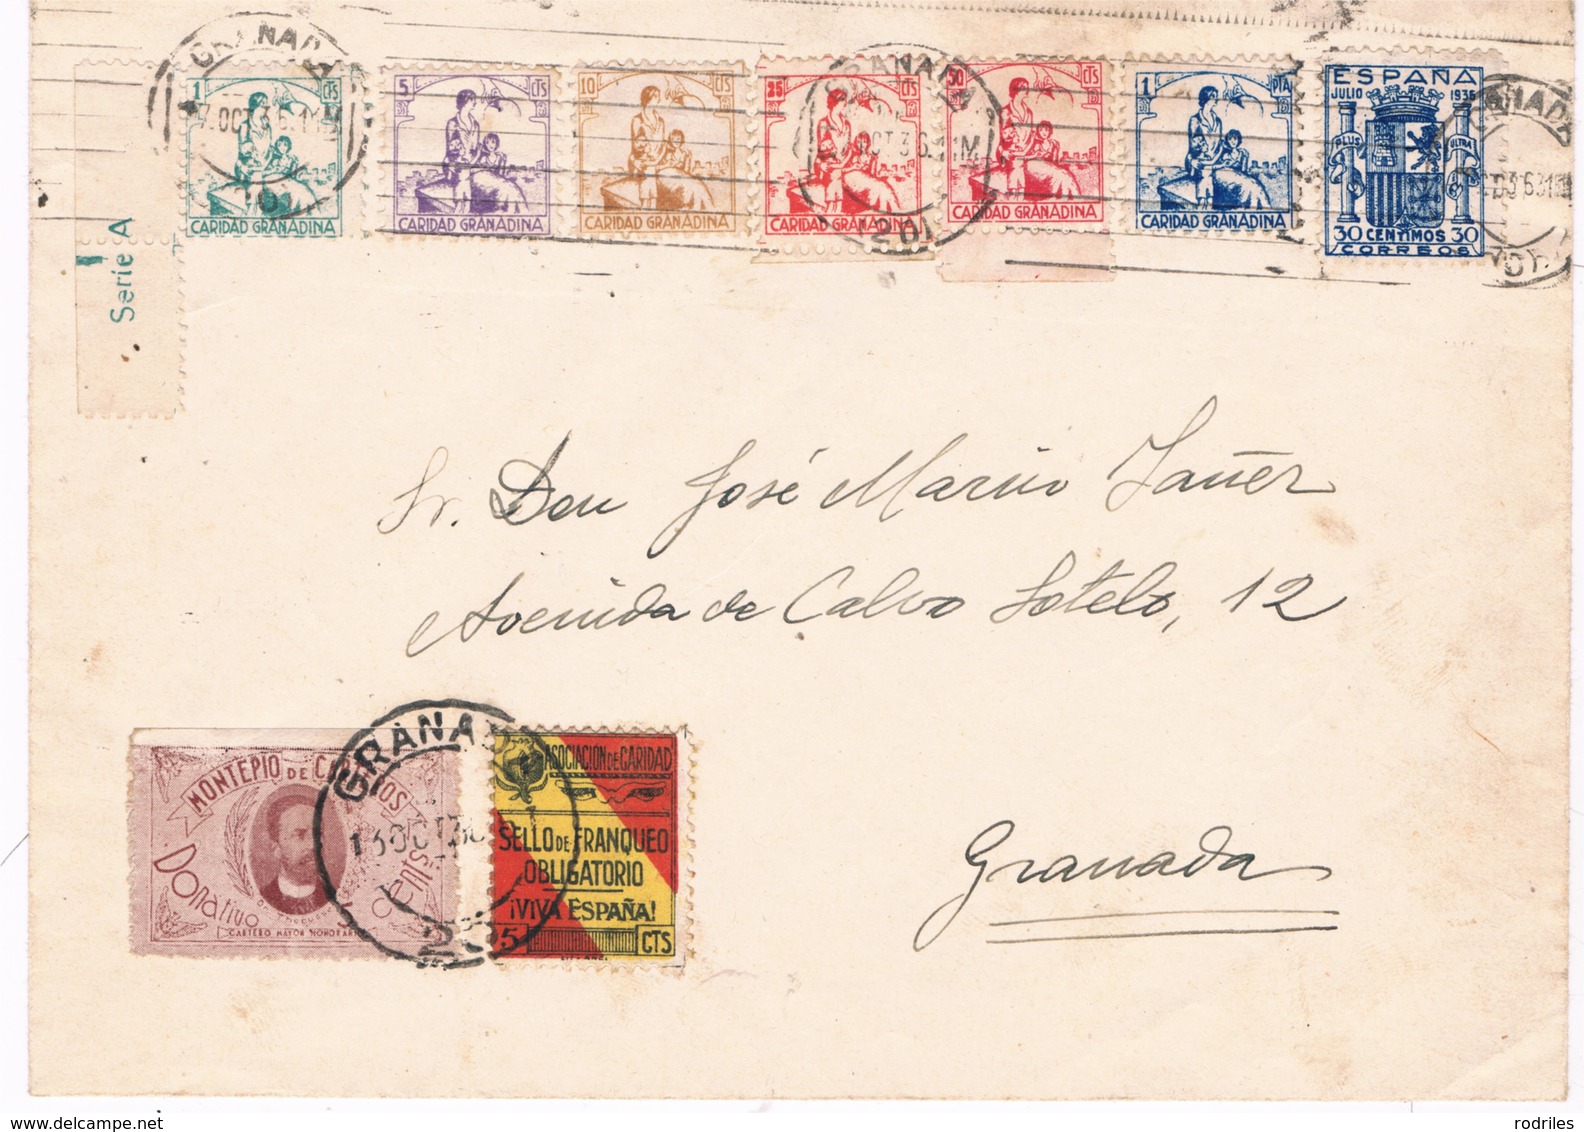 GRANADA
7.OCT.36.
201
1 CTS
CARIDAD GRANADINA
5 CTS
CARIDAD GRANADINA
10 CTS
CARIDAD GRANADINA
25 CTS
CARIDAD GRANADINA
GRANADA
OCT 36.
201
50 CTS
CARIDAD GRANADINA
1 PTA
CARIDAD GRANADINA
ESPAÑA
JULIO 1936
PLUS ULTRA
30 CENTIMOS 30
CORREOS
GRANADA
Serie A
Sr. Don José Marino Yañez
Avenida de Calvo Sotelo, 12
Granada
MONTEPIO DE
Donativo 5 Centms
CARTERO MAYOR HONORARIO
GRANADA
13 OCT 36
ASOCIACION DE CARIDAD
SELLO DE FRANQUEO
OBLIGATORIO
¡VIVA ESPAÑA!
5 CTS
rodriles
delcampe.net